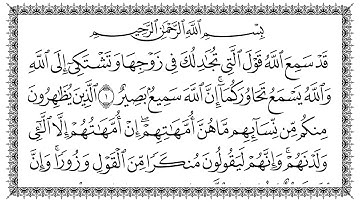 بِسْمِ اللَّهِ الرَّحْمَٰنِ الرَّحِيمِ
قَدْ سَمِعَ اللَّهُ قَوْلَ الَّتِي تُجَادِلُكَ فِي زَوْجِهَا وَتَشْتَكِي إِلَى اللَّهِ
وَاللَّهُ يَسْمَعُ تَحَاوُرَكُمَا ۚ إِنَّ اللَّهَ سَمِيعٌ بَصِيرٌ ﴿١﴾ الَّذِينَ يُظَاهِرُونَ
مِنكُم مِّن نِّسَائِهِم مَّا هُنَّ أُمَّهَاتِهِمْ ۖ إِنْ أُمَّهَاتُهُمْ إِلَّا اللَّائِي
وَلَدْنَهُمْ ۚ وَإِنَّهُمْ لَيَقُولُونَ مُنكَرًا مِّنَ الْقَوْلِ وَزُورًا ۚ وَإِنَّ